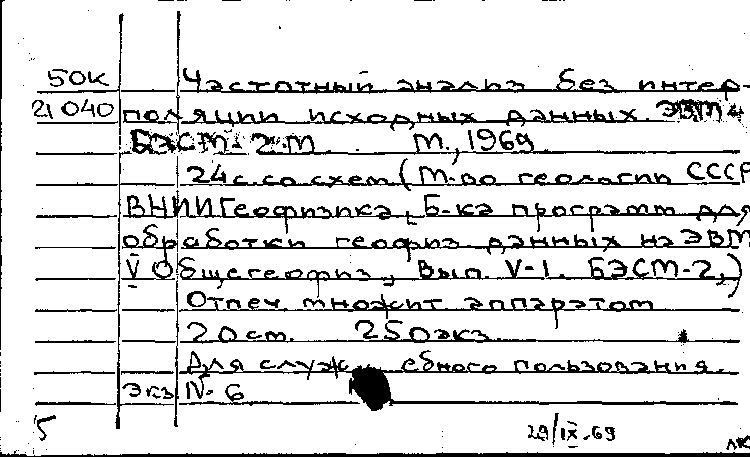 50к Частотный анализ без интер-
21040 поляции исходных данных. ЭВМ
БЭСМ-2М. М., 1969.
24 с. со схем (М-во геологии СССР
ВНИИГеофизика, Б-ка программ для
обработки геофиз данных на ЭВМ
V Общегеофиз., Вып. V-1. БЭСМ-2,)
Отпеч. множит аппаратом
20 см. 250 экз.
Для служебного пользования.
Экз № 6
5 29/IX-69